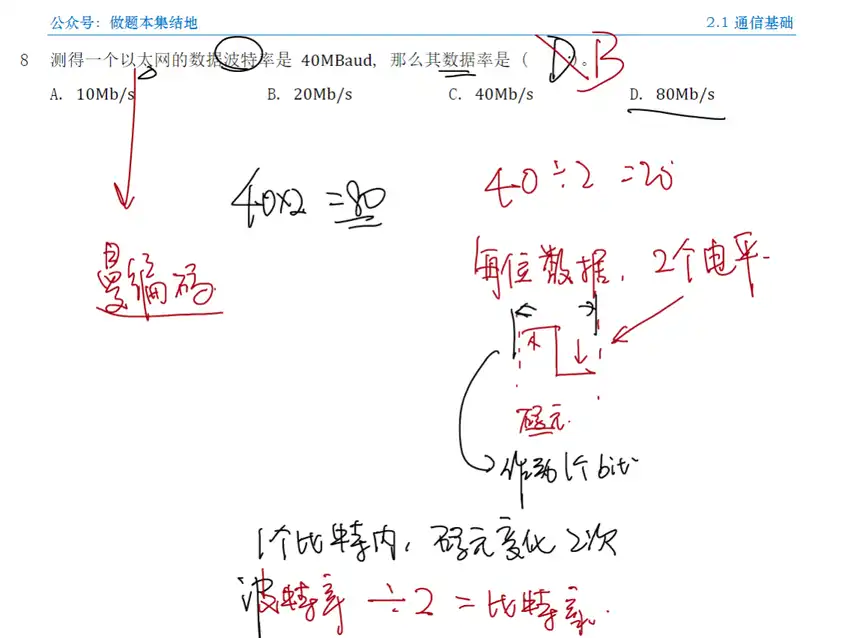 公众号：做题本集结地 2.1 通信基础
8 测得一个以太网的数据波特率是 40MBaud，那么其数据率是（ D ）。B
A. 10Mb/s B. 20Mb/s C. 40Mb/s D. 80Mb/s
40×2=80
40÷2=20
曼编码
每位数据，2个电平
码元
1个bit
1个比特内，码元变化2次
波特率÷2=比特率